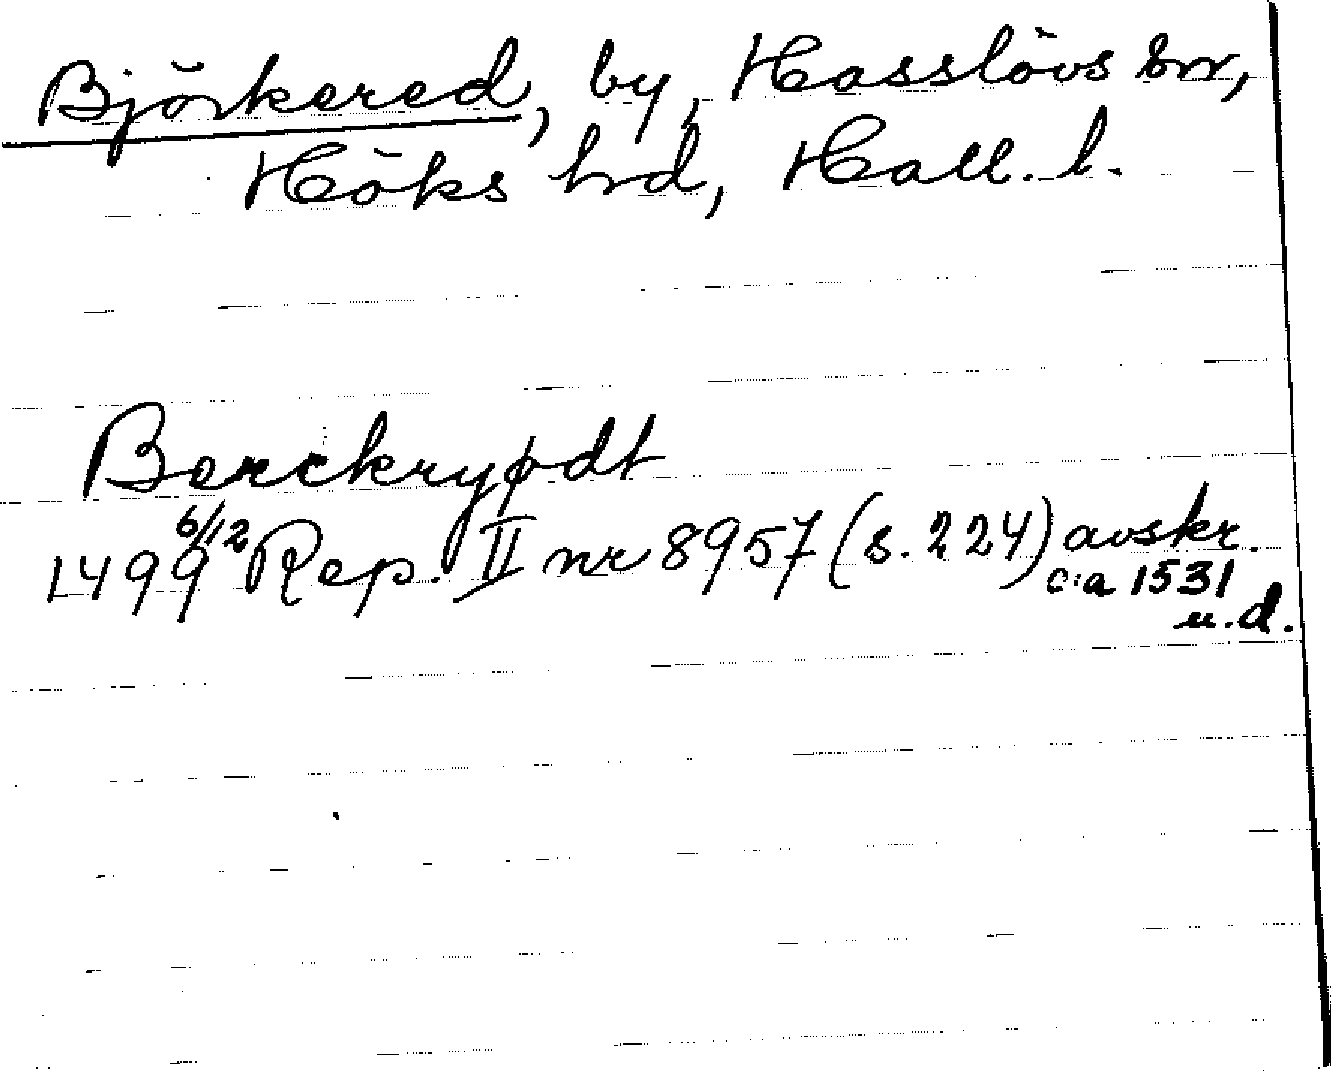 Björkered, by, Hasslövs sn,
Höks hrd, Hall. l.
Berckryødt
1499 6/12 Rep. II nr 8957 (s. 224) avskr.
c:a 1531
u.d.